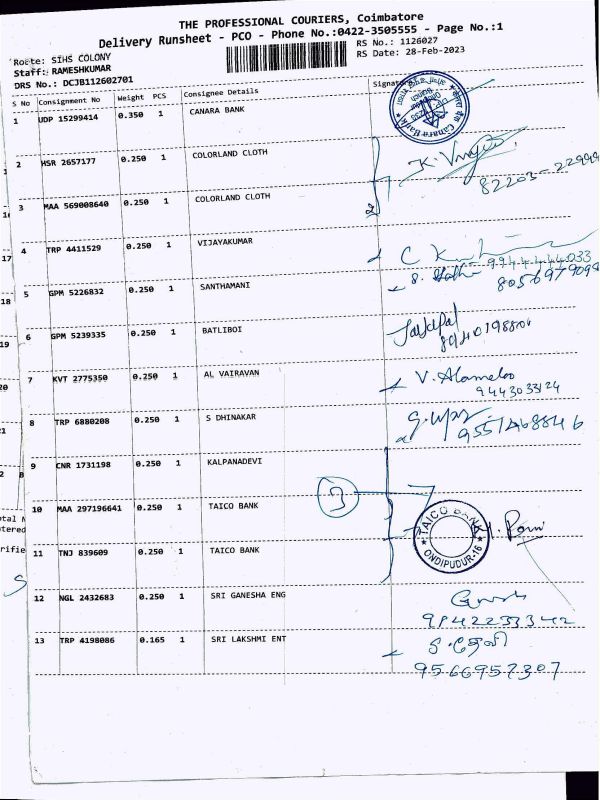 THE PROFESSIONAL COURIERS, Coimbatore
Delivery Runsheet - PCO - Phone No.:0422-3505555 - Page No.:1
Route: SIHS COLONY
RS No.: 1126027
Staff: RAMESHKUMAR
RS Date: 28-Feb-2023
DRS No.: DCJB112602701
S No Consignment No Weight PCS Consignee Details Signature
1 UDP 15299414 0.350 1 CANARA BANK
Canara Bank
2 HSR 2657177 0.250 1 COLORLAND CLOTH
82203-22999
3 MAA 569008640 0.250 1 COLORLAND CLOTH
4 TRP 4411529 0.250 1 VIJAYAKUMAR
9944444033
5 GPM 5226832 0.250 1 SANTHAMANI
8056979098
6 GPM 5239335 0.250 1 BATLIBOI
Jayapal
7 KVT 2775350 0.250 1 AL VAIRAVAN V. Alameloo
9443033124
8 TRP 6880208 0.250 1 S DHINAKAR
9551468846
9 CNR 1731198 0.250 1 KALPANADEVI
3
10 MAA 297196641 0.250 1 TAICO BANK
TAICO BANK
ONDIPUDUR-16
11 TNJ 839609 0.250 1 TAICO BANK
12 NGL 2432683 0.250 1 SRI GANESHA ENG
9842233342
13 TRP 4198086 0.165 1 SRI LAKSHMI ENT
9566957307